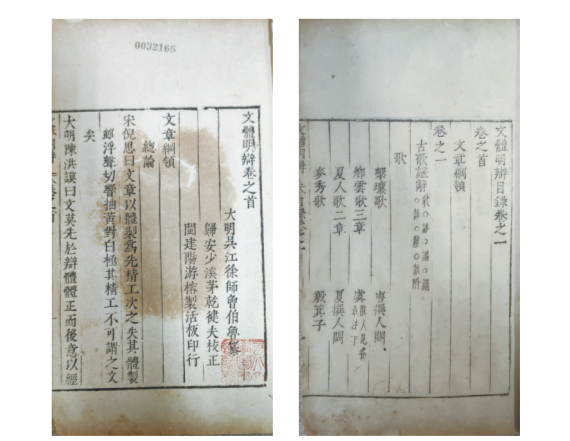 0032165
文體明辯卷之首
大明吳江徐師曾伯魯纂
歸安少溪茅乾健夫校正
閩建陽游榕製活板印行
文章綱領
總論
宋倪思曰文章以體製為先精工次之失其體製
雖浮聲切響抽黃對白極其精工不可謂之文
矣
大明陳洪謨曰文莫先於辯體體正而後意以經
文體明辯目錄卷之一
卷之首
文章綱領
卷之一
古歌謠辭
歌
擊壤歌 撰人闕
卿雲歌三章 虞
夏人歌二章 夏撰人闕
麥秀歌 殷箕子